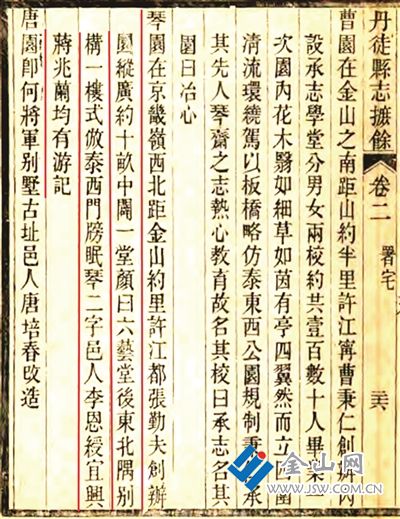 丹徒縣志摭餘 卷二 署宅
曹園在金山之南距山約半里許江甯曹秉仁創辦內
設承志學堂分男女兩校約共壹百數十人畢業
次園內花木翳如細草如茵有亭四翼然而立四圍
清流環繞駕以板橋略仿泰東西公園規制秉 承
其先人琴齋之志熱心教育故名其校曰承志名其
園曰冶心
琴園在京畿嶺西北距金山約里許江都張勤夫創辦
園縱廣約十畝中闢一堂顏曰六藝堂後東北隅別
構一樓式倣泰西門牓眠琴二字邑人李恩綬宜興
蔣兆蘭均有游記
唐園卽何將軍別墅古址邑人唐培春改造
金山网
WWW.JSW.COM.CN